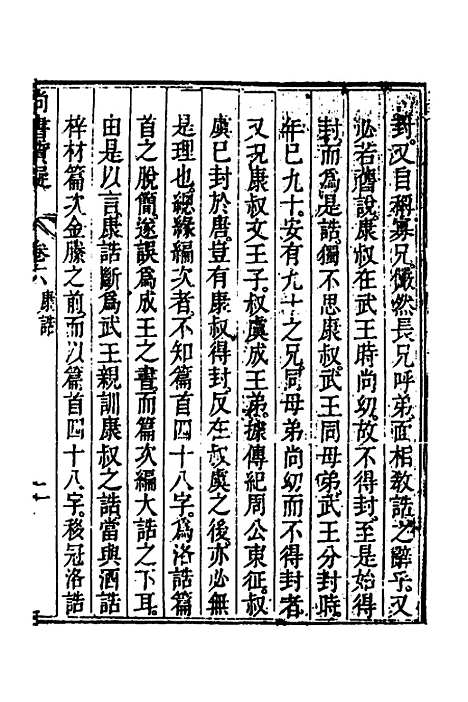 封。又自稱寡兄。儼然長兄呼弟。面相敎誥之辭乎。又
必若舊說。康叔在武王時尚幼。故不得封。至是始得
封。而爲是誥。獨不思康叔。武王同母弟。武王分封時。
年已九十。安有九十之兄。同母弟尚幼而不得封者。
又况康叔文王子。叔虞成王弟。據傳紀周公東征。叔
虞已封於唐。豈有康叔得封。反在叔虞之後。亦必無
是理也。總緣編次者。不知篇首四十八字。爲洛誥篇
首之脫簡。遂誤爲成王之書。而篇次編大誥之下耳。
由是以言。康誥斷爲武王親訓康叔之誥。當與酒誥
梓材篇次金縢之前。而以篇首四十八字。移冠洛誥
尚書質疑
卷六
康誥
十一